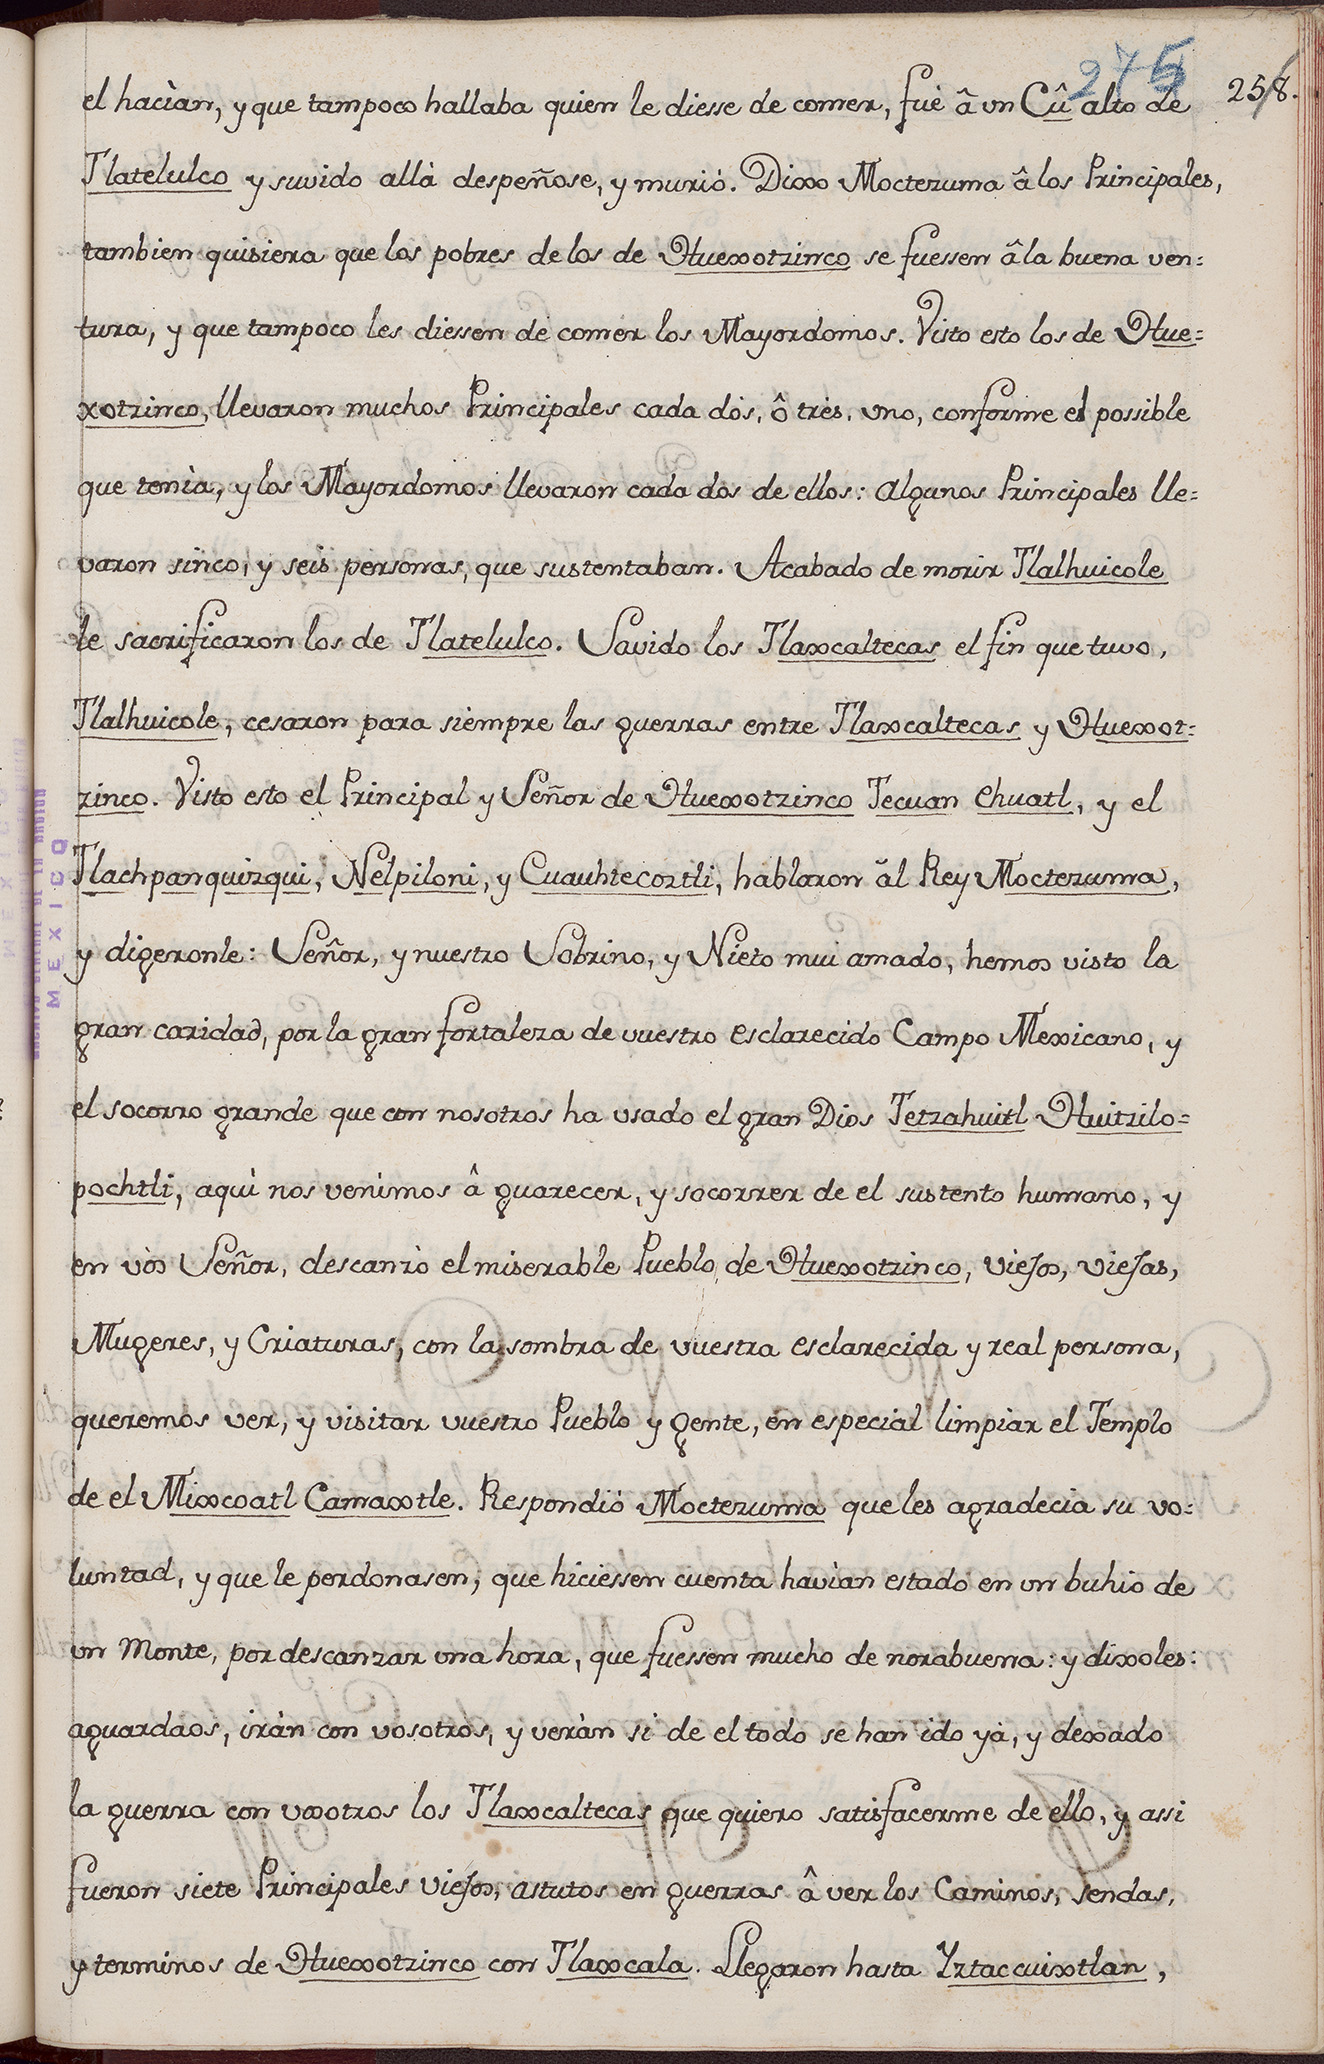 275
258.
el hacìan, y que tampoco hallaba quien le diesse de comer, fuè â un Cû alto de
Tlatelulco y suvido allà despeñose, y muriò. Dixo Moctezuma â los Principales,
tambien quisiera que los pobres de los de Huexotzinco se fuessen â la buena ven=
tura, y que tampoco les diessen de comer los Mayordomos. Visto esto los de Hue=
xotzinco, llevaron muchos Principales cada dòs, ô tres, uno, conforme el possible
que tenìa, y los Mayordomos llevaron cada dos de ellos: algunos Principales lle=
varon sinco, y seis personas, que sustentaban. Acabado de morir Tlalhuicole
le sacrificaron los de Tlatelulco. Savido los Tlaxcaltecas el fin que tuvo,
Tlalhuicole, cesaron para siempre las guerras entre Tlaxcaltecas y Huexot=
zinco. Visto esto el Principal y Señor de Huexotzinco Tecuan ehuatl, y el
Tlachpanquizqui, Nelpiloni, y Cuauhtecoztli, hablaron âl Rey Moctezuma,
y digeronle: Señor, y nuestro Sobrino, y Nieto mui amado, hemos visto la
gran caridad, por la gran fortaleza de vuestro esclarecido Campo Mexicano, y
el socorro grande que con nosotros ha usado el gran Dios Tetzahuitl Huitzilo=
pochtli, aquì nos venimos â guarecer, y socorrer de el sustento humano, y
en vòs Señor, descanzò el miserable Pueblo de Huexotzinco, viejos, viejas,
Mugeres, y Criaturas, con la sombra de vuestra esclarecida y real persona,
queremos ver, y visitar vuestro Pueblo y gente, en especial limpiar el Templo
de el Mixcoatl Camaxtle. Respondiò Moctezuma que les agradecia su vo=
luntad, y que le perdonasen, que hiciessen cuenta havìan estado en un buhio de
un Monte, por descanzar una hora, que fuessen mucho de norabuena: y dixoles:
aguardaos, iràn con vosotros, y veràn si de el todo se han ido yà, y dexado
la guerra con vxotros los Tlaxcaltecas que quiero satisfacerme de ello, y assi
fueron siete Principales viejos, astutos en guerras â ver los Caminos, sendas,
y terminos de Huexotzinco con Tlaxcala. Llegaron hasta Yztaccuixtlan,
MEXICO